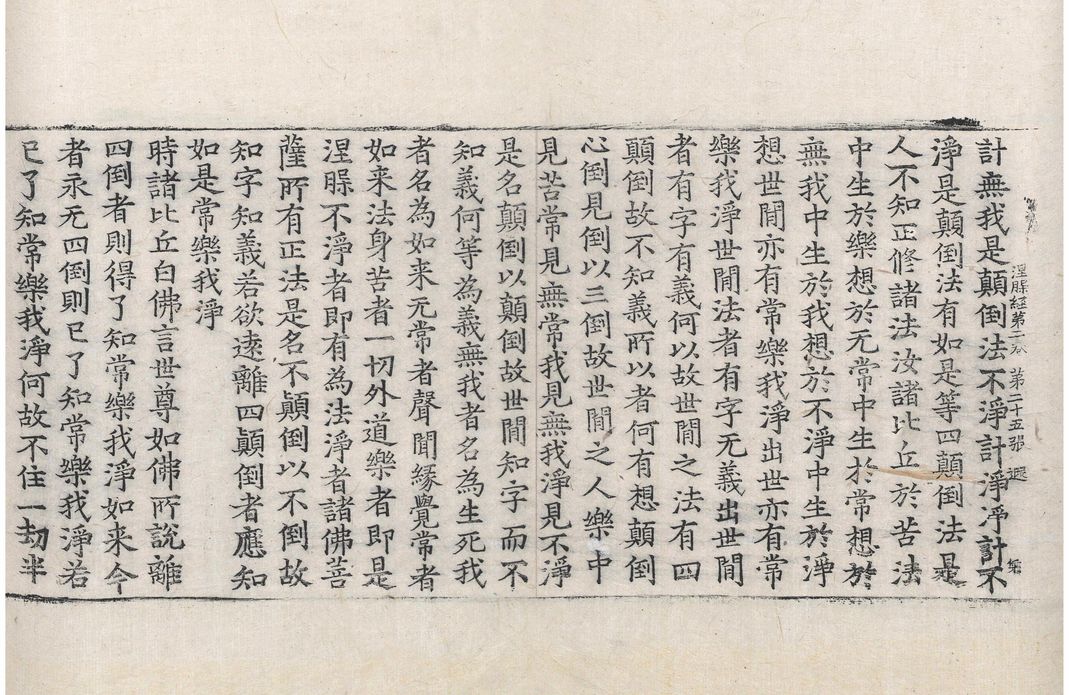 涅槃經第二卷 第二十五張 遐
計無我是顛倒法不淨計淨淨計不
淨是顛倒法有如是等四顛倒法是
人不知正修諸法汝諸比丘於苦法
中生於樂想於无常中生於常想於
無我中生於我想於不淨中生於淨
想世間亦有常樂我淨出世亦有常
樂我淨世間法者有字无義出世間
者有字有義何以故世間之法有四
顛倒故不知義所以者何有想顛倒
心倒見倒以三倒故世間之人樂中
見苦常見無常我見無我淨見不淨
是名顛倒以顛倒故世間知字而不
知義何等為義無我者名為生死我
者名為如来无常者聲聞緣覺常者
如来法身苦者一切外道樂者即是
涅槃不淨者即有為法淨者諸佛菩
薩所有正法是名不顛倒以不倒故
知字知義若欲遠離四顛倒者應知
如是常樂我淨
時諸比丘白佛言世尊如佛所說離
四倒者則得了知常樂我淨如来今
者永无四倒則已了知常樂我淨若
已了知常樂我淨何故不住一劫半